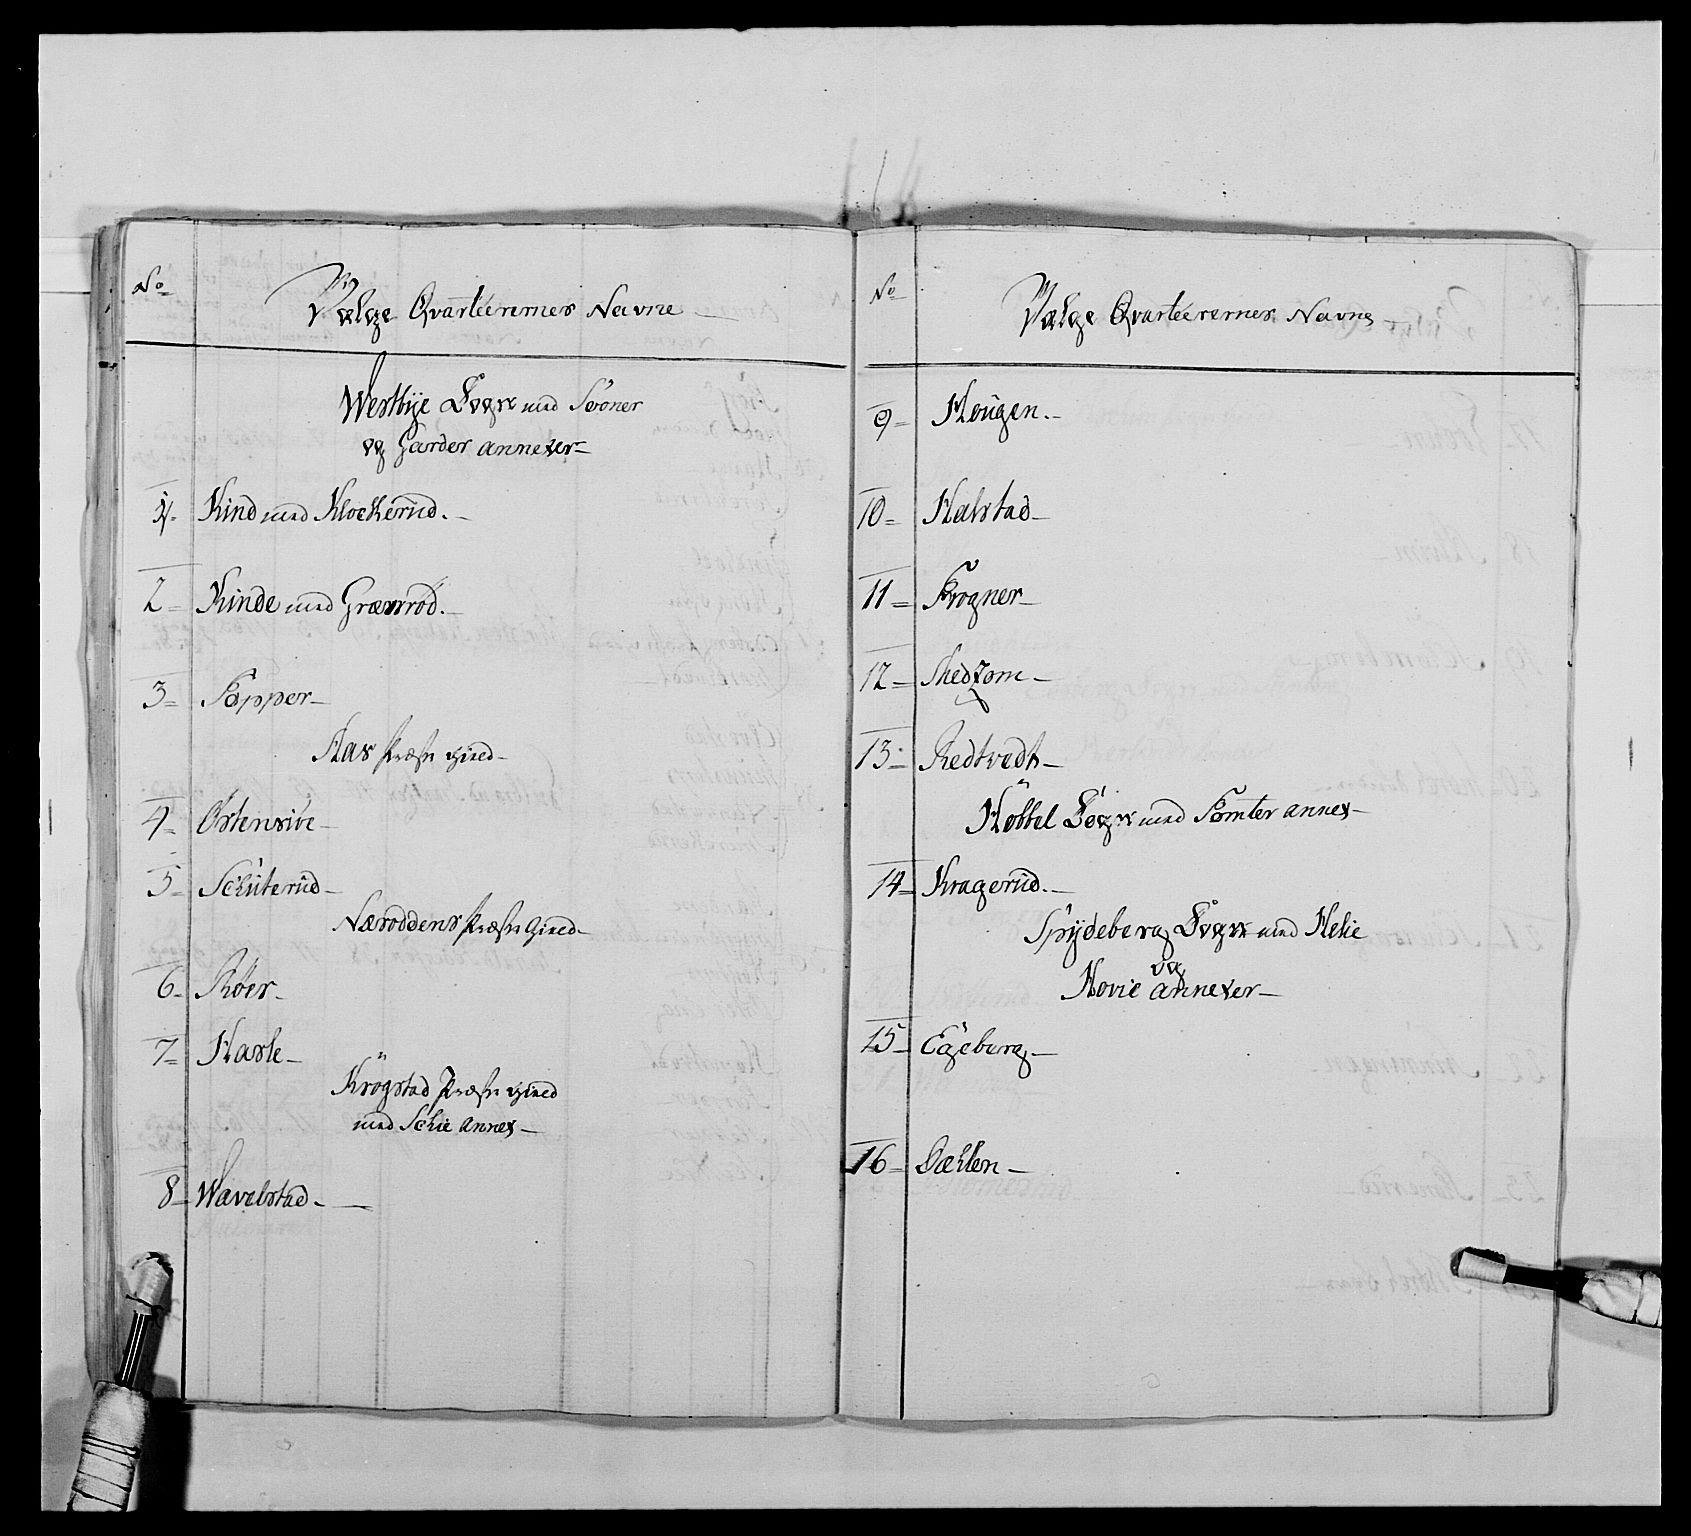 No
Vælge Qvarteerernes Navne
Westbye Sogn med Soner
og Garder annexer
1. Kind med Klockerud.
2 Kinde med Grævsrod.
3 Popper
Aas Præste Gield
4 Østensive
5 Schuterud
Næsoddens Præste Gield
6 Røer
7 Hasle
Krogstad Præste Gield
med Schie annex
8 Wævelstad
No
Vælge Qvarteerernes Navne
9 Hougen.
10 Halstad
11 Frogner
12
13 Redtvedt
Høbbel Sogn med Tomter annex
14 Kragerud.
Spydeberg Sogn med Helie
og
Hovie annexer
15 Egeberg
16 Dæhlen